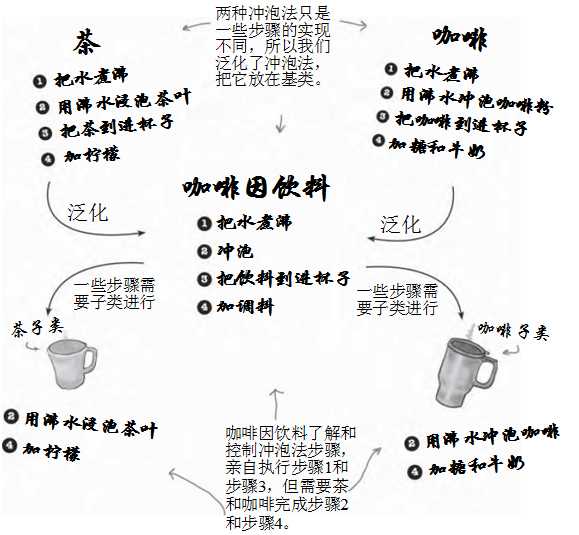 两种冲泡法只是
一些步骤的实现
不同，所以我们
泛化了冲泡法，
把它放在基类。
茶
❶把水煮沸
❷用沸水浸泡茶叶
❸把茶到进杯子
❹加柠檬
咖啡
❶把水煮沸
❷用沸水冲泡咖啡粉
❸把咖啡到进杯子
❹加糖和牛奶
泛化
泛化
咖啡因饮料
❶把水煮沸
❷冲泡
❸把饮料到进杯子
❹加调料
一些步骤需
要子类进行
一些步骤需
要子类进行
茶子类
咖啡子类
❷用沸水浸泡茶叶
❹加柠檬
咖啡因饮料了解和
控制冲泡法步骤，
亲自执行步骤1和
步骤3，但需要茶
和咖啡完成步骤2
和步骤4。
❷用沸水冲泡咖啡
❹加糖和牛奶